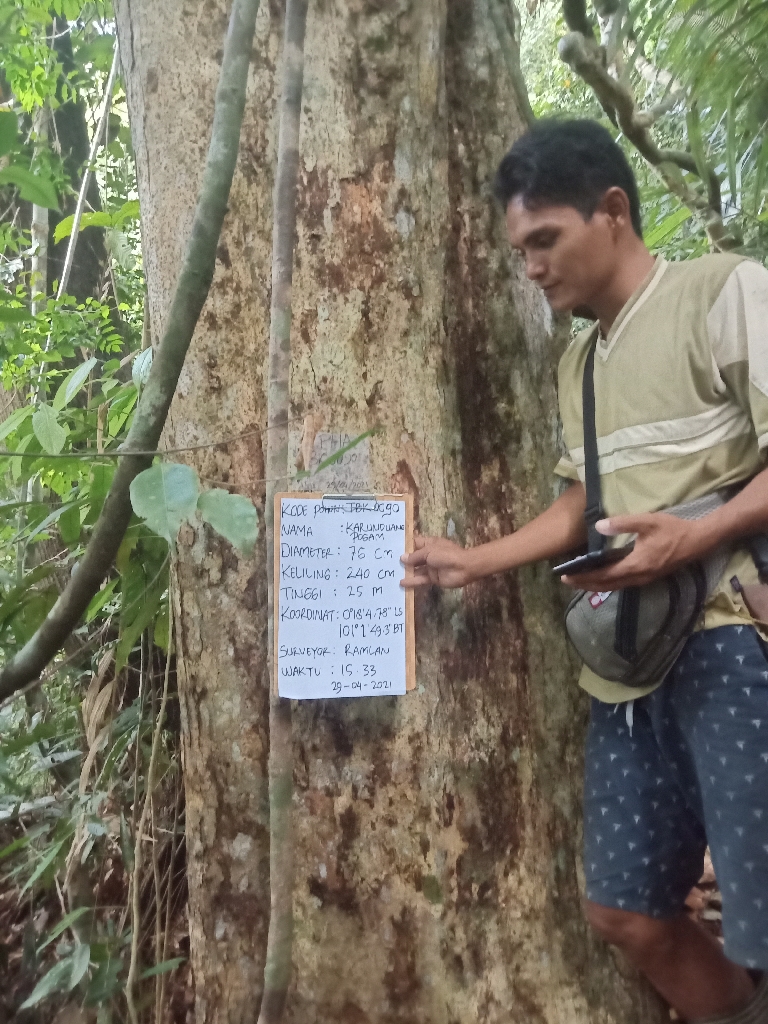 29/04/2021
KODE POHON: TBK 0090
NAMA : KARUNGUANG
POGAM
DIAMETER : 76 Cm
KELILING : 240 cm
TINGGI : 25 M
KOORDINAT : 0°18'4.78" LS
101°1'49.3" BT
SURVEYOR : RAMLAN
WAKTU : 15.33
29-04-2021